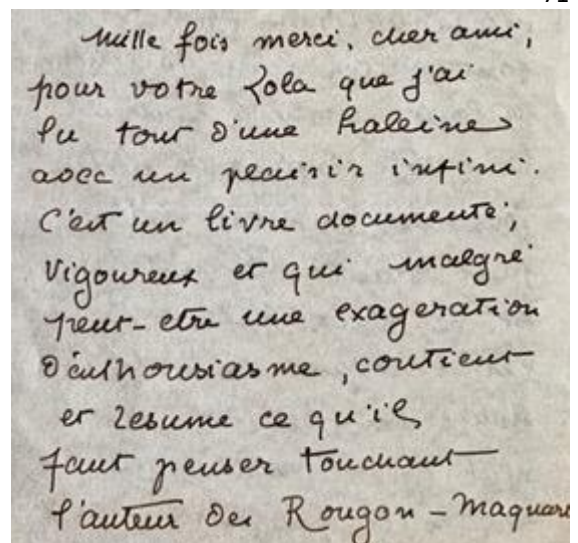 mille fois merci, cher ami,
pour votre Zola que j'ai
lu tout d'une haleine
avec un plaisir infini.
C'est un livre documenté,
vigoureux et qui malgré
peut-etre une exageration
d'enthousiasme, contient
et resume ce qu'il
faut penser touchant
l'auteur des Rougon-Maquart